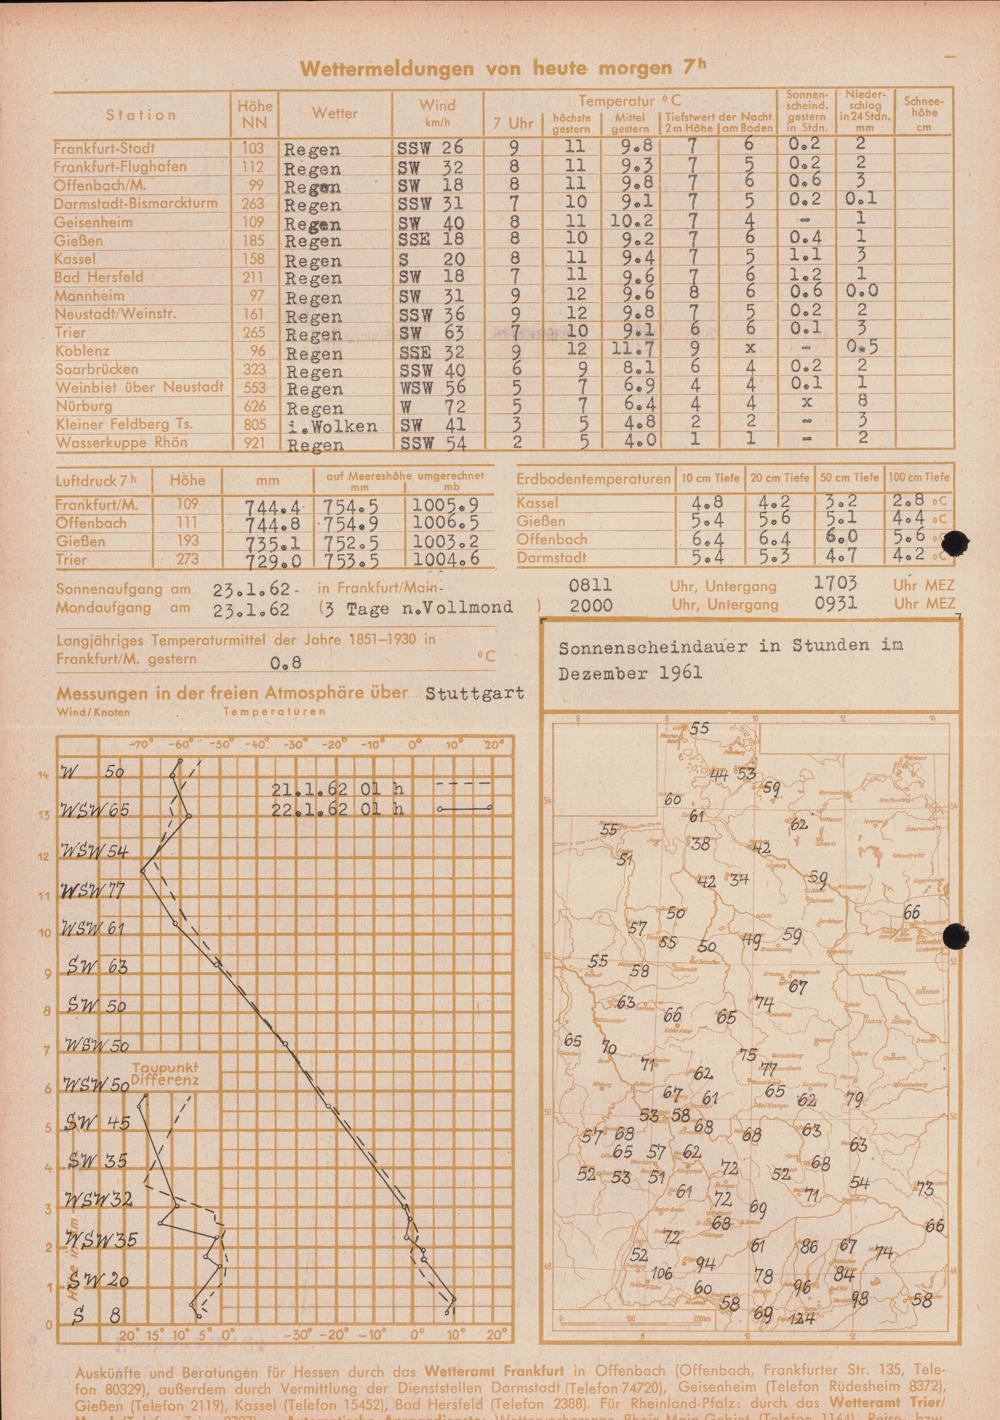 Wettermeldungen von heute morgen 7h
Station Höhe NN Wetter Wind km/h Temperatur °C Sonnenscheind. gestern in Stdn. Niederschlag in 24 Stdn. mm Schneehöhe cm
7 Uhr höchste gestern Mittel gestern Tiefstwert der Nacht 2 m Höhe am Boden
Frankfurt-Stadt 103 Regen SSW 26 9 11 9.8 7 6 0.2 2
Frankfurt-Flughafen 112 Regen SW 32 8 11 9.3 7 5 0.2 2
Offenbach/M. 99 Regen SW 18 8 11 9.8 7 6 0.6 3
Darmstadt-Bismarckturm 263 Regen SSW 31 7 10 9.1 7 5 0.2 0.1
Geisenheim 109 Regen SW 40 8 11 10.2 7 4 - 1
Gießen 185 Regen SSE 18 8 10 9.2 7 6 0.4 1
Kassel 158 Regen S 20 8 11 9.4 7 5 1.1 3
Bad Hersfeld 211 Regen SW 18 7 11 9.6 7 6 1.2 1
Mannheim 97 Regen SW 31 9 12 9.6 8 6 0.6 0.0
Neustadt/Weinstr. 161 Regen SSW 36 9 12 9.8 7 5 0.2 2
Trier 265 Regen SW 63 7 10 9.1 6 6 0.1 3
Koblenz 96 Regen SSE 32 9 12 11.7 9 x - 0.5
Saarbrücken 323 Regen SSW 40 6 9 8.1 6 4 0.2 2
Weinbiet über Neustadt 553 Regen WSW 56 5 7 6.9 4 4 0.1 1
Nürburg 626 Regen W 72 5 7 6.4 4 4 x 8
Kleiner Feldberg Ts. 805 i.Wolken SW 41 3 5 4.8 2 2 - 3
Wasserkuppe Rhön 921 Regen SSW 54 2 5 4.0 1 1 - 2
Luftdruck 7h Höhe mm auf Meereshöhe umgerechnet mm mb
Frankfurt/M. 109 744.4 754.5 1005.9
Offenbach 111 744.8 754.9 1006.5
Gießen 193 735.1 752.5 1003.2
Trier 273 729.0 753.5 1004.6
Erdbodentemperaturen 10 cm Tiefe 20 cm Tiefe 50 cm Tiefe 100 cm Tiefe
Kassel 4.8 4.2 3.2 2.8 °C
Gießen 5.4 5.6 5.1 4.4 °C
Offenbach 6.4 6.4 6.0 5.6 °C
Darmstadt 5.4 5.3 4.7 4.2 °C
Sonnenaufgang am 23.1.62 in Frankfurt/Main 0811 Uhr, Untergang 1703 Uhr MEZ
Mondaufgang am 23.1.62 (3 Tage n.Vollmond ) 2000 Uhr, Untergang 0931 Uhr MEZ
Langjähriges Temperaturmittel der Jahre 1851–1930 in
Frankfurt/M. gestern 0.8 °C
Messungen in der freien Atmosphäre über Stuttgart
Wind/Knoten Temperaturen
-70° -60° -50° -40° -30° -20° -10° 0° 10° 20°
21.1.62 01 h
22.1.62 01 h
14 W 50
13 WSW 65
12 WSW 54
11 WSW 77
10 WSW 61
9 SW 63
8 SW 50
7 WSW 50
Taupunkt Differenz
6 WSW 50
5 SW 45
4 SW 35
3 WSW 32
2 WSW 35
1 SW 20
0 S 8
20° 15° 10° 5° 0° -30° -20° -10° 0° 10° 20°
Sonnenscheindauer in Stunden im
Dezember 1961
6 8 10 12 14
55
44 53
59
60
61
62
55
38 42
51
42 34 59
50 66
57
55 50 49 59
55 58
67
63 74
66 65
65 70
75
71 62 77
67 61 65 62 79
53 58
57 68 68 68 63
63
65 57 62
52 53 51 72 52 68
61 54 73
72 69 71
68 66
72
52 61 86 67 74
94
106 78 84
60 96
58 98 58
69 124
0 100 200km
Auskünfte und Beratungen für Hessen durch das Wetteramt Frankfurt in Offenbach (Offenbach, Frankfurter Str. 135, Tele-
fon 80329), außerdem durch Vermittlung der Dienststellen Darmstadt (Telefon 74720), Geisenheim (Telefon Rüdesheim 8372),
Gießen (Telefon 2119), Kassel (Telefon 15452), Bad Hersfeld (Telefon 2388). Für Rheinland-Pfalz: durch das Wetteramt Trier/